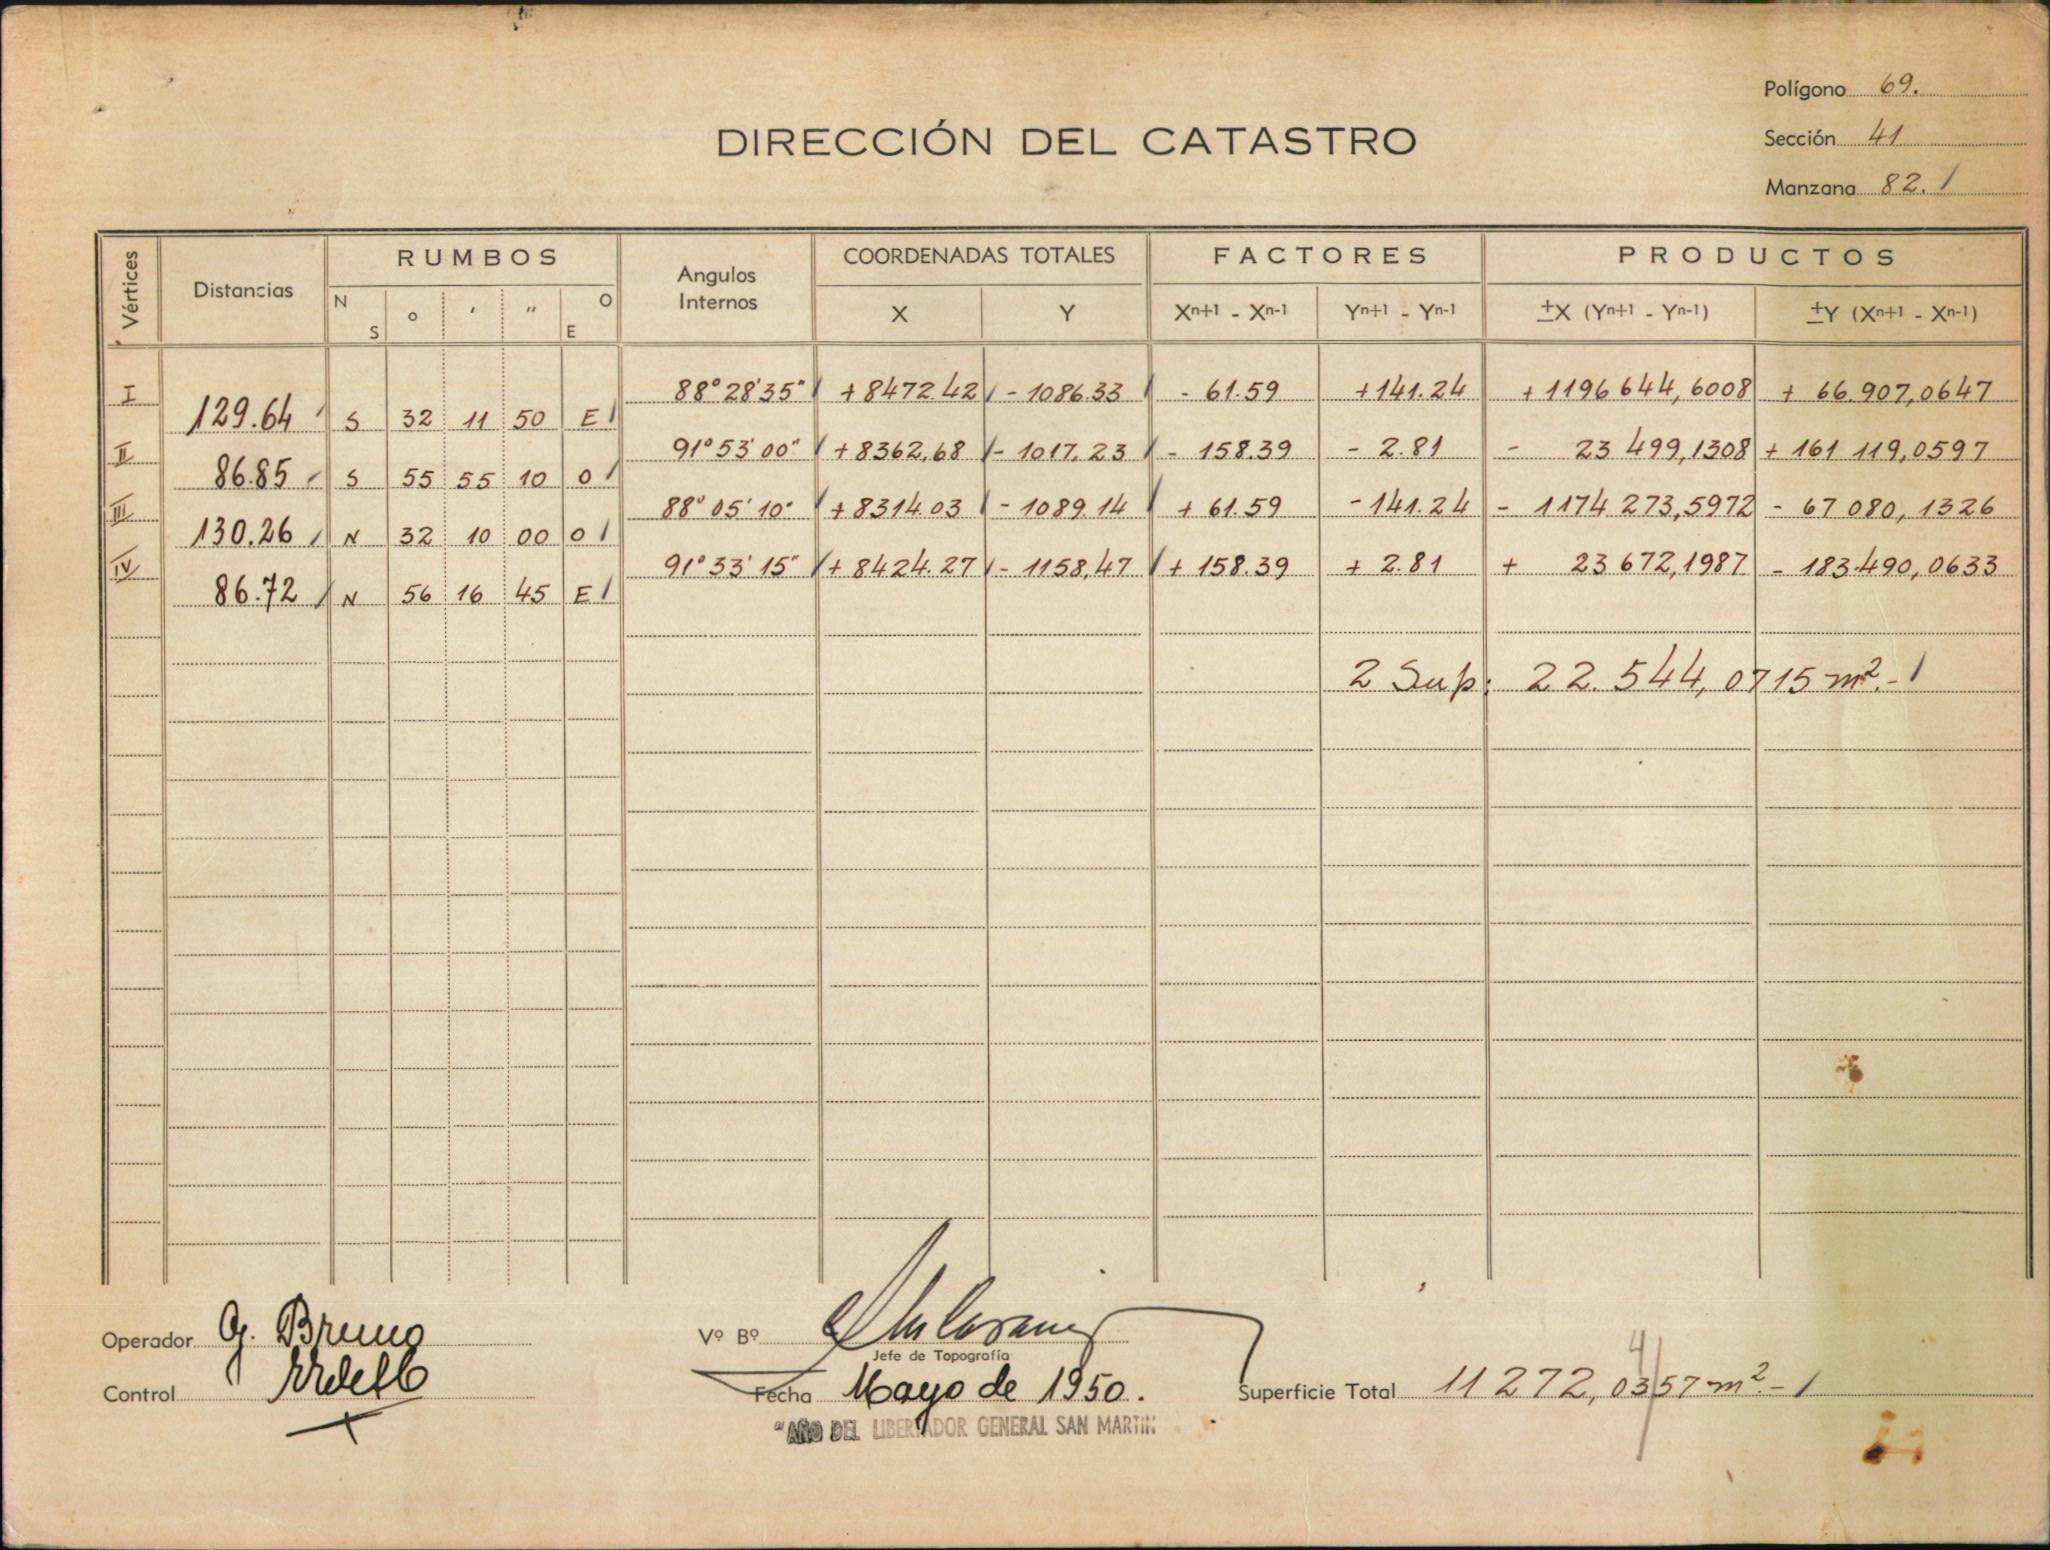 Polígono 69.
DIRECCIÓN DEL CATASTRO
Sección 41
Manzana 82.
Vértices Distancias RUMBOS Angulos Internos COORDENADAS TOTALES FACTORES PRODUCTOS
N S o ' " O E X Y Xn+1 - Xn-1 Yn+1 - Yn-1 ±X (Yn+1 - Yn-1) ±Y (Xn+1 - Xn-1)
I 88° 28' 35" + 8472.42 - 1086.33 - 61.59 + 141.24 + 1196 644,6008 + 66.907,0647
129.64 S 32 11 50 E
II 91° 53' 00" + 8362,68 - 1017.23 - 158.39 - 2.81 - 23 499,1308 + 161 119,0597
86.85 S 55 55 10 O
III 88° 05' 10" + 8314.03 - 1089.14 + 61.59 - 141.24 - 1174 273,5972 - 67 080,1326
130.26 N 32 10 00 O
IV 91° 33' 15" + 8424.27 - 1158,47 + 158.39 + 2.81 + 23 672,1987 - 183.490,0633
86.72 N 56 16 45 E
2 Sup: 22.544,0715 m².-
Operador G. Bruno Vº Bº
Jefe de Topografía
Control Fecha Mayo de 1950. Superficie Total 11272,0357 m².-
4
"AÑO DEL LIBERTADOR GENERAL SAN MARTIN